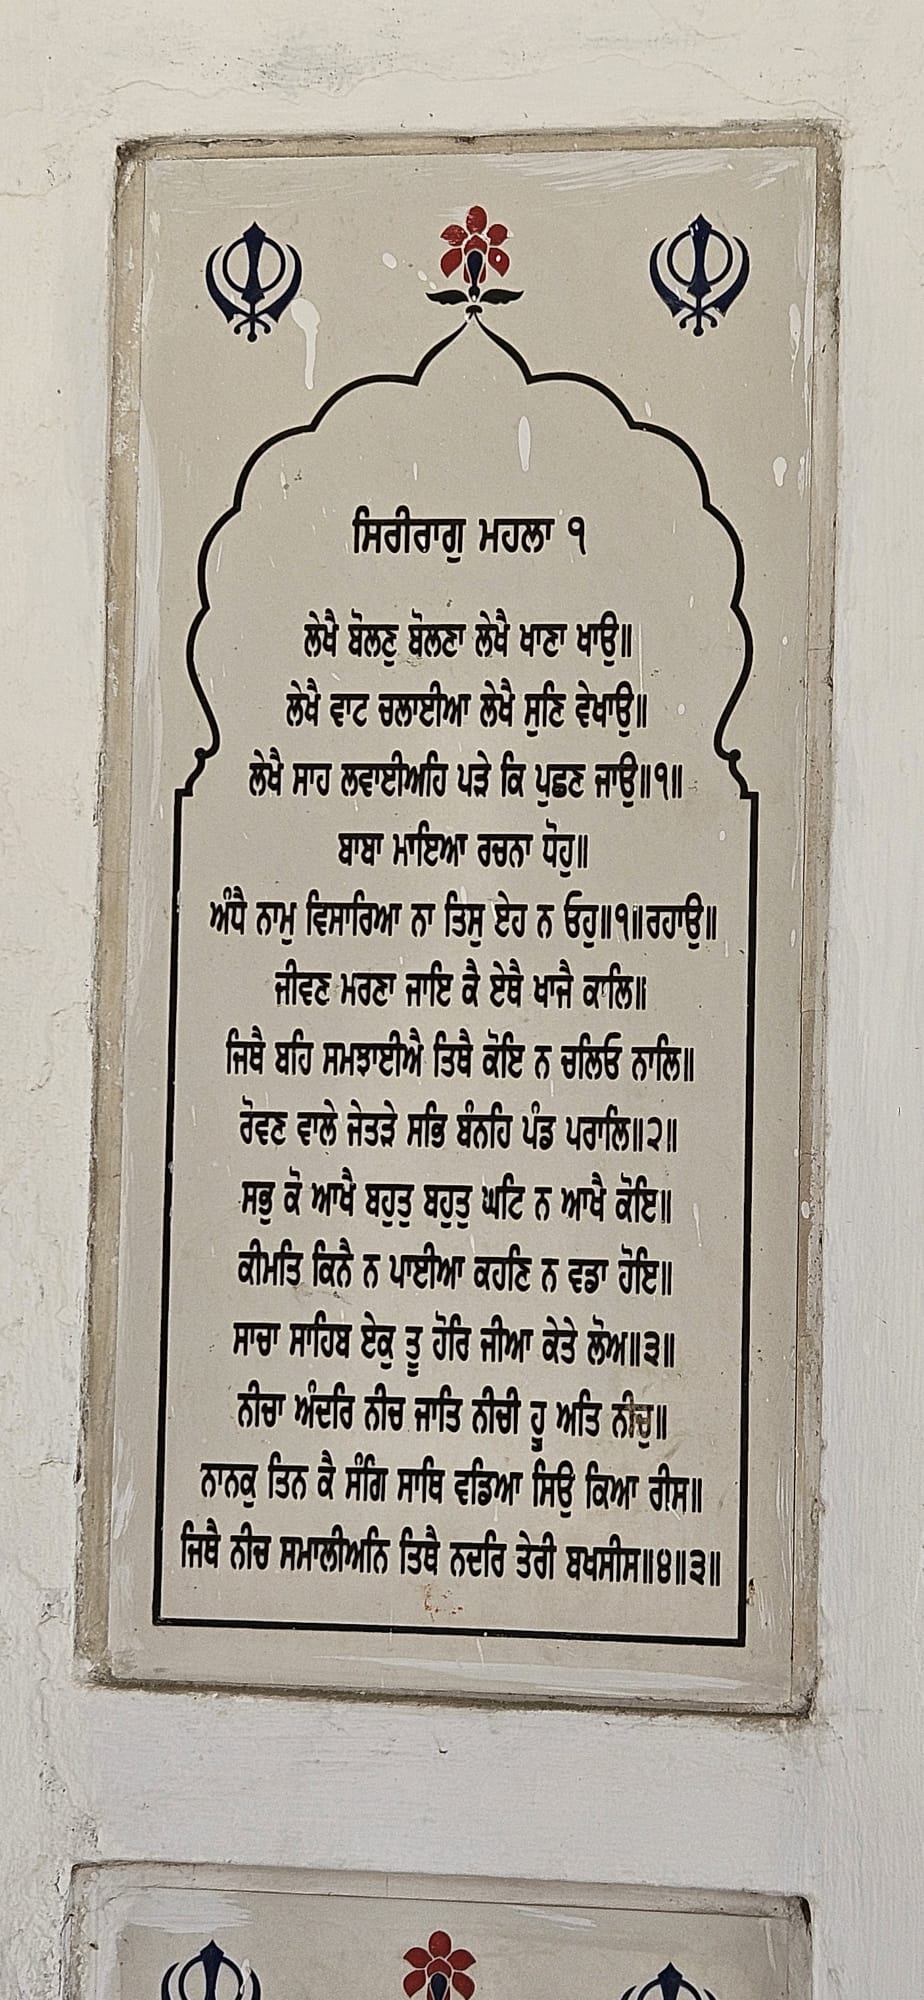 ਸਿਰੀਰਾਗੁ ਮਹਲਾ ੧
ਲੇਖੈ ਬੋਲਣੁ ਬੋਲਣਾ ਲੇਖੈ ਖਾਣਾ ਖਾਉ॥
ਲੇਖੈ ਵਾਟ ਚਲਾਈਆ ਲੇਖੈ ਸੁਣਿ ਵੇਖਾਉ॥
ਲੇਖੈ ਸਾਹ ਲਵਾਈਅਹਿ ਪੜੇ ਕਿ ਪੁਛਣ ਜਾਉ॥੧॥
ਬਾਬਾ ਮਾਇਆ ਰਚਨਾ ਧੋਹੁ॥
ਅੰਧੈ ਨਾਮੁ ਵਿਸਾਰਿਆ ਨਾ ਤਿਸੁ ਏਹ ਨ ਓਹੁ॥੧॥ਰਹਾਉ॥
ਜੀਵਣ ਮਰਣਾ ਜਾਇ ਕੈ ਏਥੈ ਖਾਜੈ ਕਾਲਿ॥
ਜਿਥੈ ਬਹਿ ਸਮਝਾਈਐ ਤਿਥੈ ਕੋਇ ਨ ਚਲਿਓ ਨਾਲਿ॥
ਰੋਵਣ ਵਾਲੇ ਜੇਤੜੇ ਸਭਿ ਬੰਨਹਿ ਪੰਡ ਪਰਾਲਿ॥੨॥
ਸਭੁ ਕੋ ਆਖੈ ਬਹੁਤੁ ਬਹੁਤੁ ਘਟਿ ਨ ਆਖੈ ਕੋਇ॥
ਕੀਮਤਿ ਕਿਨੈ ਨ ਪਾਈਆ ਕਹਣਿ ਨ ਵਡਾ ਹੋਇ॥
ਸਾਚਾ ਸਾਹਿਬ ਏਕੁ ਤੂ ਹੋਰਿ ਜੀਆ ਕੇਤੇ ਲੋਅ॥੩॥
ਨੀਚਾ ਅੰਦਰਿ ਨੀਚ ਜਾਤਿ ਨੀਚੀ ਹੂ ਅਤਿ ਨੀਚੁ॥
ਨਾਨਕੁ ਤਿਨ ਕੈ ਸੰਗਿ ਸਾਥਿ ਵਡਿਆ ਸਿਉ ਕਿਆ ਰੀਸ॥
ਜਿਥੈ ਨੀਚ ਸਮਾਲੀਅਨਿ ਤਿਥੈ ਨਦਰਿ ਤੇਰੀ ਬਖਸੀਸ॥੪॥੩॥